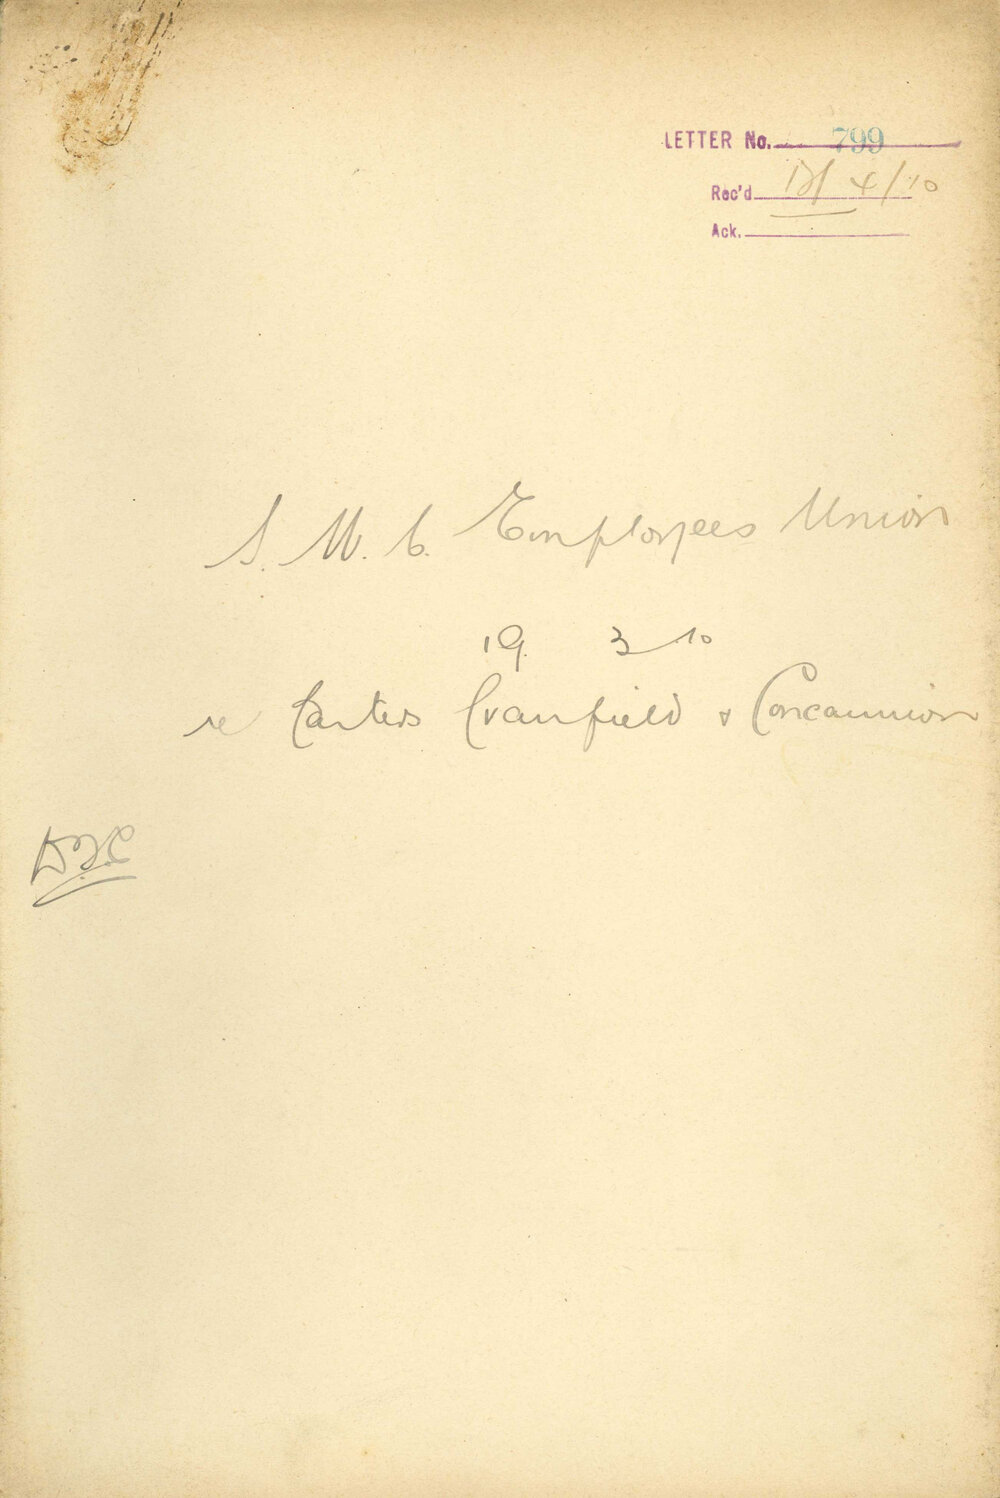 LETTER No. 799
Rec'd 13/4/10
Ack.
S. M. C. Employees Union
19 3 10
re Carters Cranfield & Concannion